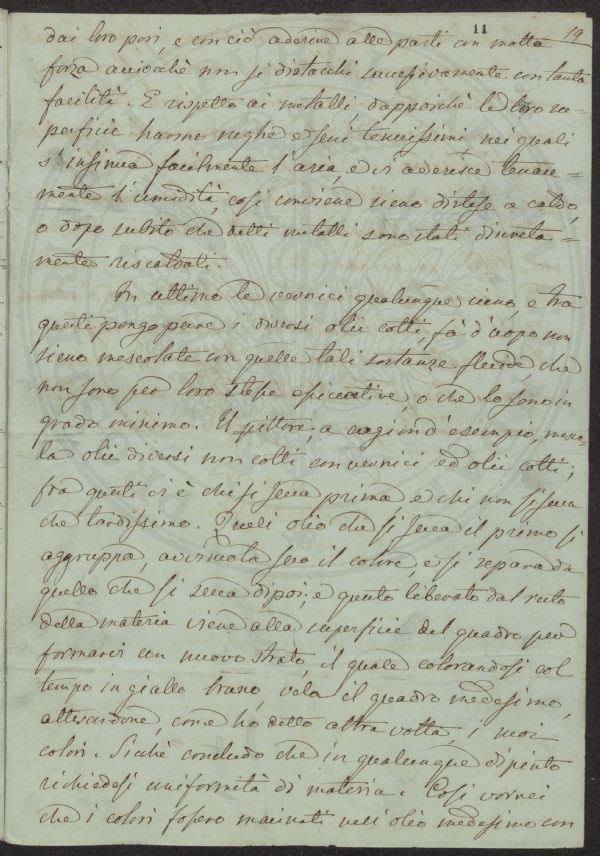 11
19
dai loro pori, e con ciò aderire alle parti con molta
forza acciocchè non si distacchi succesivamente con tanta
facilità. E rispetto ai metalli, dappoichè le loro su-
perficie hanno rughe e seni tenuissimi, nei quali
s'insinua facilmente l'aria, e vi aderisce tenace=
mente l'umidità, così conviene sieno distese a caldo,
o dopo subito che detti metalli sono stati discreta=
mente riscaldati.
In ultimo le vernici qualunque sieno, e tra
questi pongo pure i diversi olii cotti, fà d'uopo non
sieno mescolate con quelle tali sostanze fluide, che
non sono per loro stesse essiccative, o che lo sono in
grado minimo. Il pittore, a cagion d'esempio, mesco-
la olii diversi non cotti con vernici ed olii cotti;
fra questi vi è chi si secca prima, e chi non si secca
che tardissimo. Quell'olio che si secca il primo si
aggruppa, avvincola seco il colore e si separa da
quello che si secca dipoi; e questo liberato dal resto
della materia viene alla superficie del quadro per
formarvi un nuovo strato, il quale colorandosi col
tempo in giallo bruno, vela il quadro medesimo,
alterandone, come ho detto altra volta, i suoi
colori. Sicchè concludo che in qualunque dipinto
richiedesi uniformità di materia. Così vorrei
che i colori fossero macinati nell'olio medesimo con